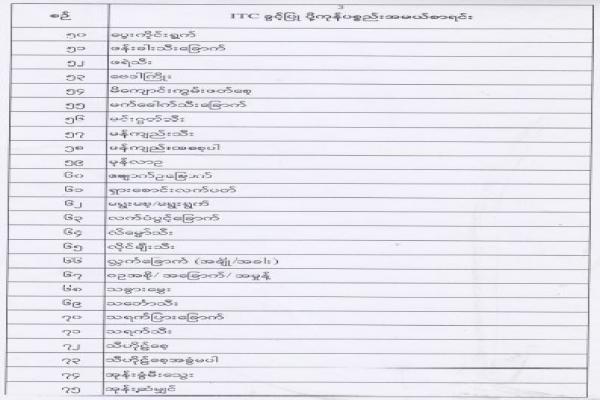 3
စဉ် ITC ခွင့်ပြု ပို့ကုန်ပစ္စည်းအမယ်စာရင်း
၅၀ မွေးကိုင်းရွက်
၅၁ ဖန်းခါးသီးခြောက်
၅၂ ဖရဲသီး
၅၃ ဗေဒါကြိုး
၅၄ မိကျောင်းကွမ်းဖတ်စေ့
၅၅ မက်ခေါက်သီးခြောက်
၅၆ မင်းဂွတ်သီး
၅၇ မန်ကျည်းသီး
၅၈ မန်ကျည်းအစေ့ပါ
၅၉ မုန်လာဥ
၆၀ ဥခြောက်
၆၁ ရှားစောင်းလက်ပတ်
၆၂ မရူးစေ့/မရူးရွက်
၆၃ လက်ပံပွင့်ခြောက်
၆၄ လိမ္မော်သီး
၆၅ လိုင်ချီးသီး
၆၆ ခြောက် (အချို/အခါး)
၆၇ ဝဥအစို/ အခြောက်/ အမှုန့်
၆၈ သခွားမွှေး
၆၉ သင်္ဘောသီး
၇၀ သရက်ပြားခြောက်
၇၁ သရက်သီး
၇၂ သီဟိုဠ်စေ့
၇၃ သီဟိုဠ်စေ့အခွံမပါ
၇၄ အုန်းခွံမီးသွေး
၇၅ အုန်းဆံမျှင်